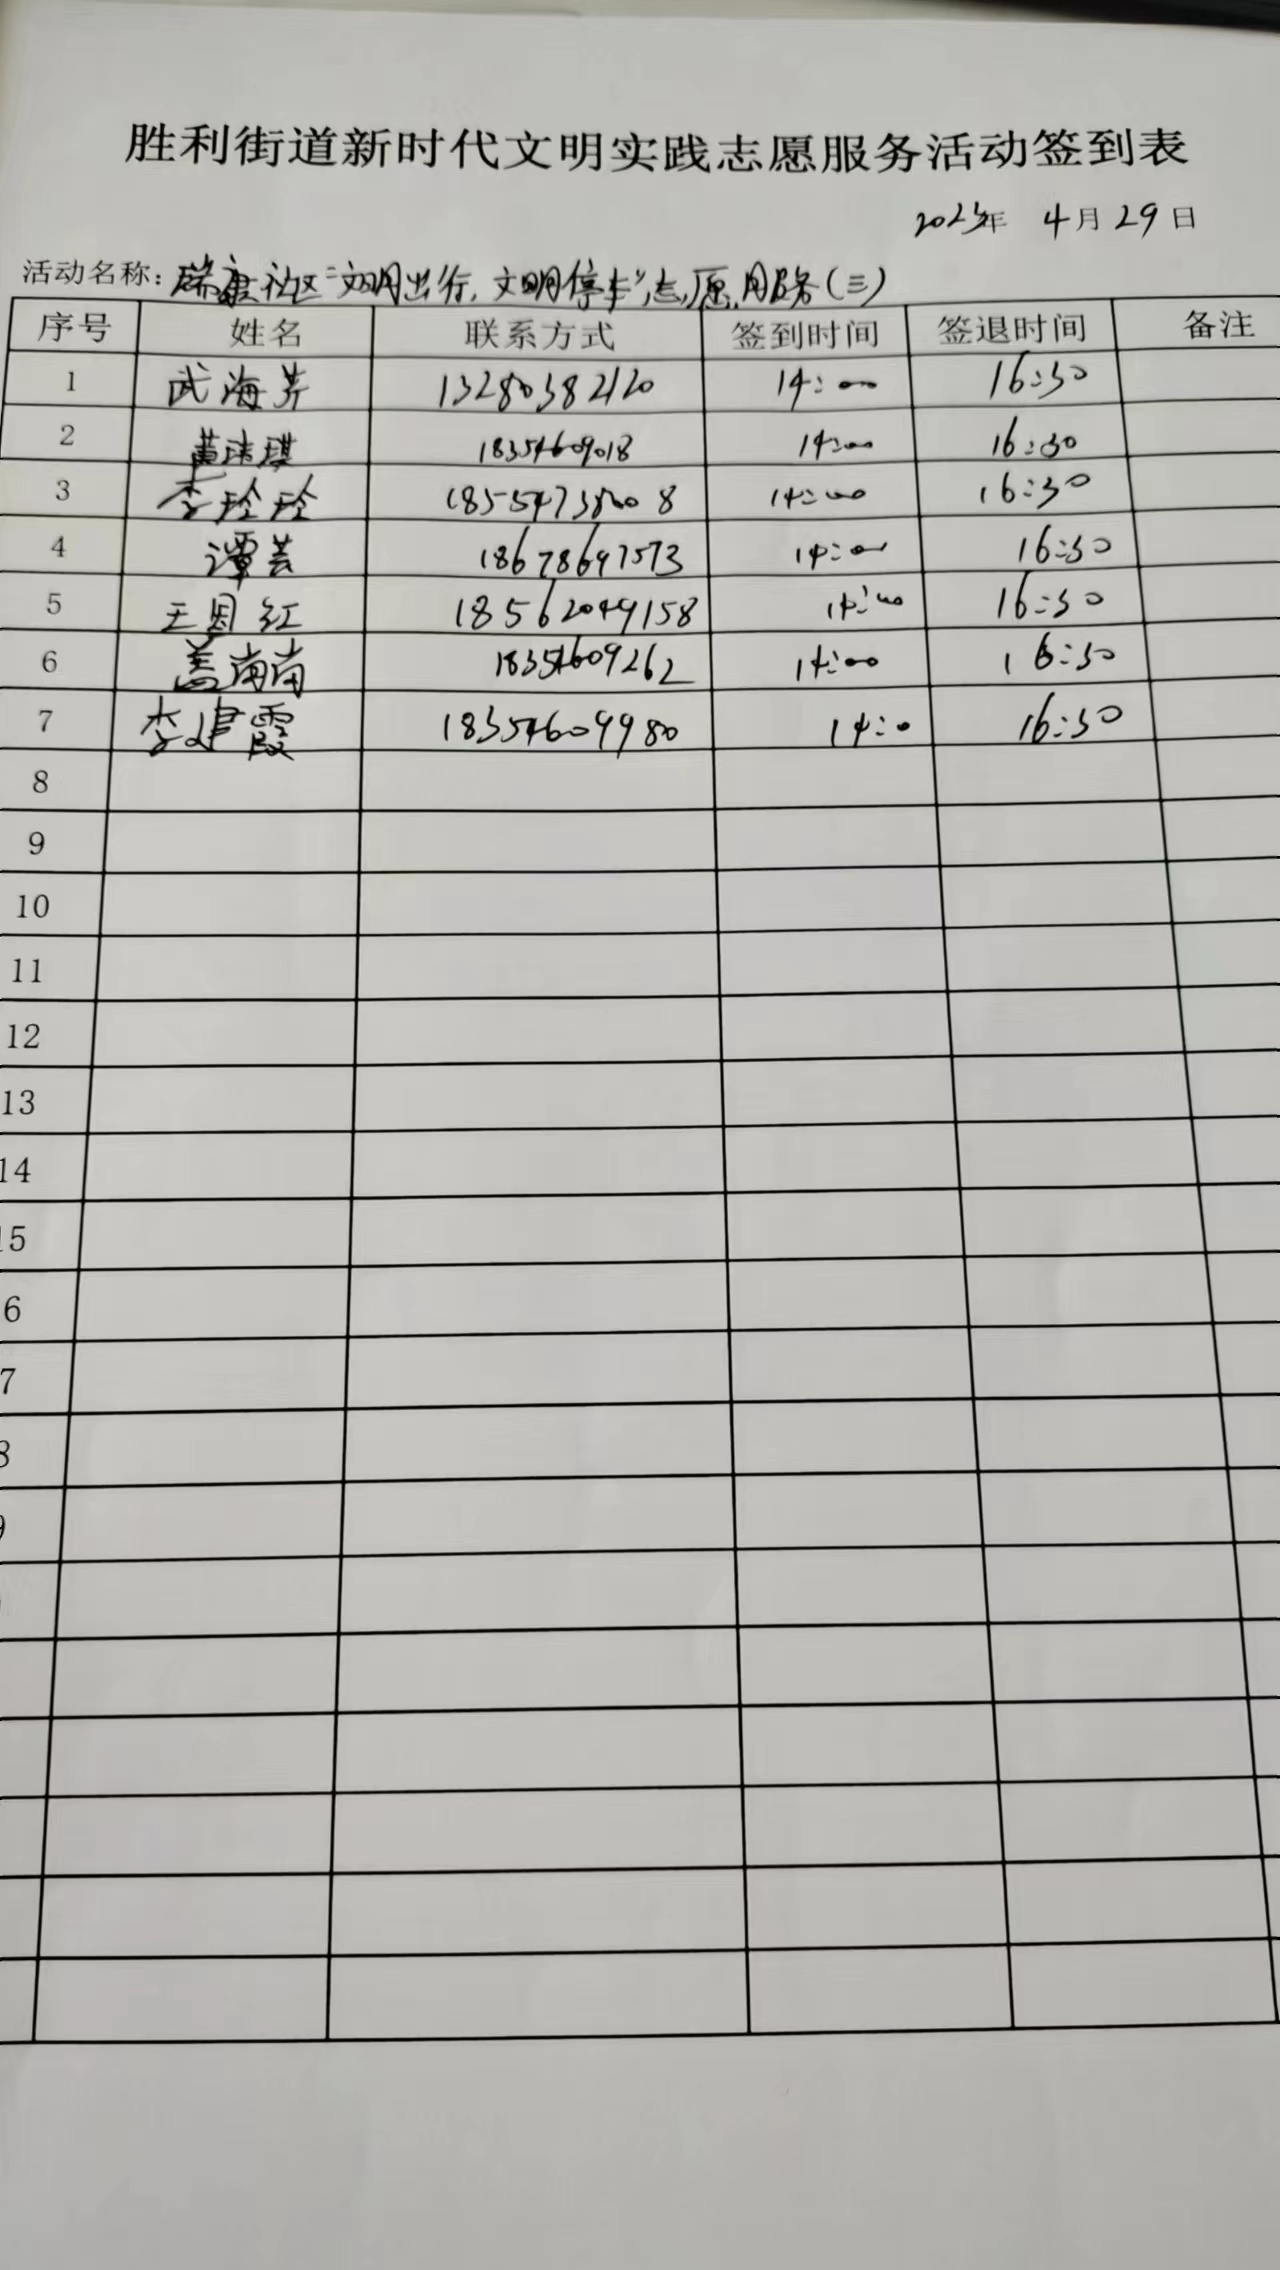 胜利街道新时代文明实践志愿服务活动签到表
2023年 4月29日
活动名称：瑞康社区“文明出行，文明停车”志愿服务（三）
序号 姓名 联系方式 签到时间 签退时间 备注
1 武海芹 13280382120 14:00 16:30
2 黄琦琪 18354609018 14:00 16:30
3 李玲玲 18554738008 14:00 16:30
4 谭芸 18678697573 14:00 16:30
5 王恩红 18562049158 14:00 16:30
6 盖南南 18354609262 14:00 16:30
7 李建霞 18354609980 14:0 16:30
8
9
10
11
12
13
14
15
6
7
8
9